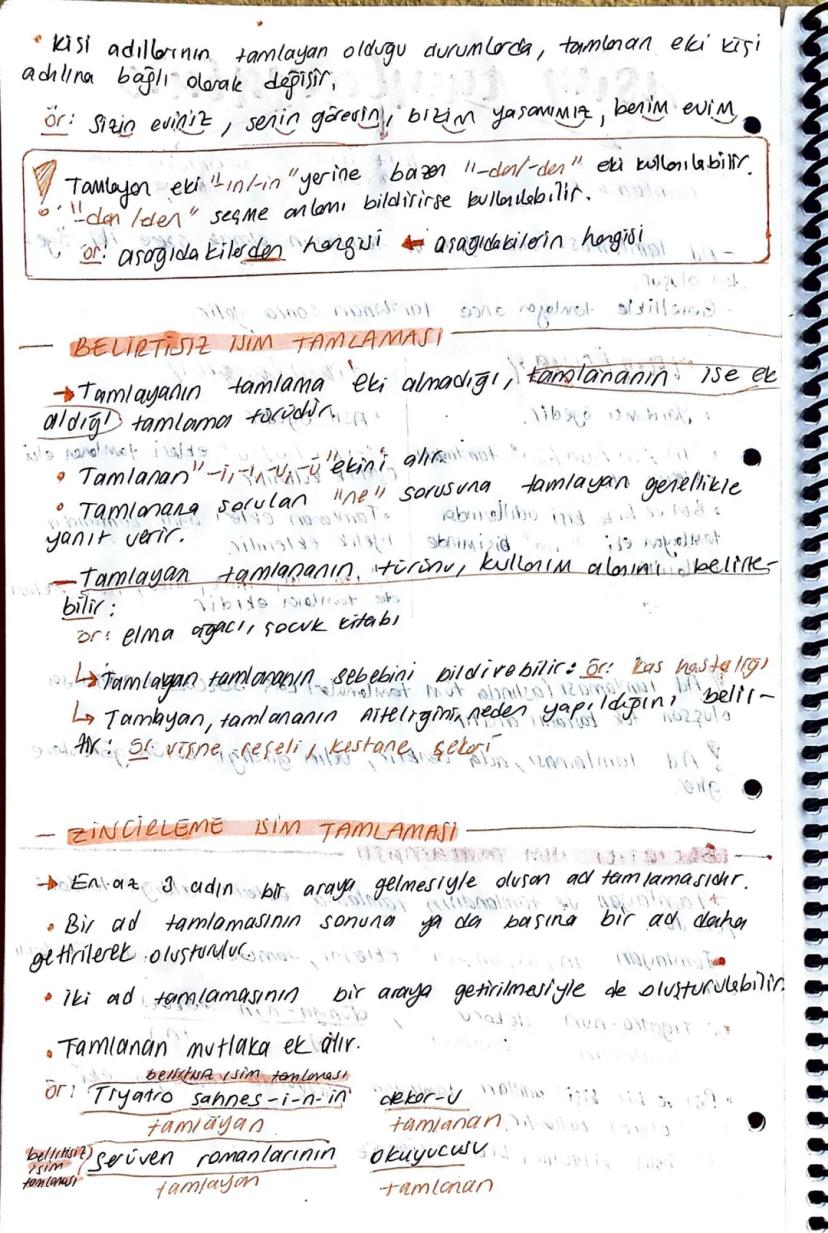 • Kişi adıllarının tamlayan olduğu durumlarda, tamlanan eki kişi
adılına bağlı olarak değişir.
ör: Sizin eviniz, senin görevin, bizim yaşamımız, benim evim
! Tamlayan eki "-ın/-in" yerine bazen "-dan/-den" eki kullanılabilir.
• "-dan/den" seçme anlamı bildirirse kullanılabilir.
ör: aşağıdakilerden hangisi ← aşağıdakilerin hangisi
BELİRTİSİZ İSİM TAMLAMASI
→ Tamlayanın tamlama eki almadığı, tamlananın ise ek
aldığı tamlama türüdür.
• Tamlanan "-i, -ı, -u, -ü" ekini alır.
• Tamlanana sorulan "ne" sorusuna tamlayan genellikle
yanıt verir.
— Tamlayan tamlananın, türünü, kullanım alanını belirte-
bilir:
ör: elma ağacı, çocuk kitabı
↳ Tamlayan tamlananın sebebini bildirebilir: ör: kas hastalığı
↳ Tamlayan, tamlananın niteliğini, neden yapıldığını belir-
tir: ör: vişne reçeli, kestane şekeri
— ZİNCİRLEME İSİM TAMLAMASI
→ En az 3 adın bir araya gelmesiyle oluşan ad tamlamasıdır.
• Bir ad tamlamasının sonuna ya da başına bir ad daha
getirilerek oluşturulur.
• iki ad tamlamasının bir araya getirilmesiyle de oluşturulabilir.
• Tamlanan mutlaka ek alır.
belirtisiz isim tamlaması
ör: Tiyatro sahnes-i-n-in dekor-u
tamlayan tamlanan
belirtisiz isim tamlaması
Serüven romanlarının okuyucusu
tamlayan tamlanan